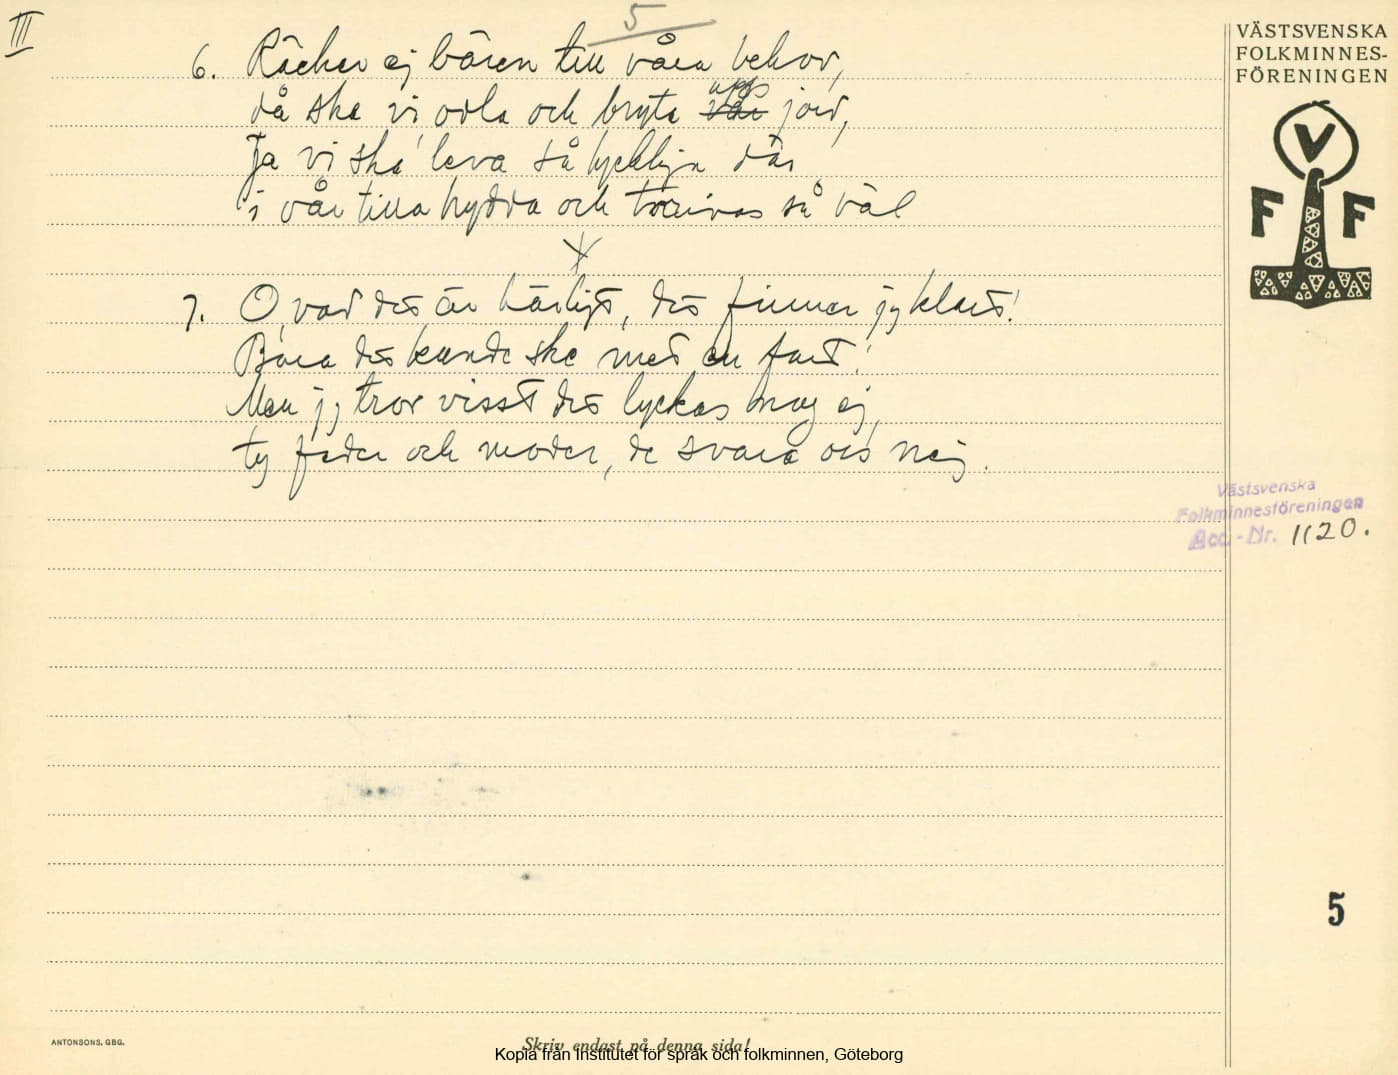 III
5
6. Räcker ej bären till våra behov,
då ska vi odla och bryta upp jord,
Ja vi ska leva så lyckliga där
i vår lilla hydda och trivas så väl
7. O, vad det är härligt, det finner jag klart!
Bara det kunde ske med en fart!
Men jag tror visst det lyckas mag ej,
ty fader och moder, de svara oss nej.
VÄSTSVENSKA
FOLKMINNES-
FÖRENINGEN
V
F F
Västsvenska
Folkminnesföreningen
Acc.-Nr. 1120.
5
ANTONSONS, GBG.
Skriv endast på denna sida!
Kopia från Institutet för språk och folkminnen, Göteborg